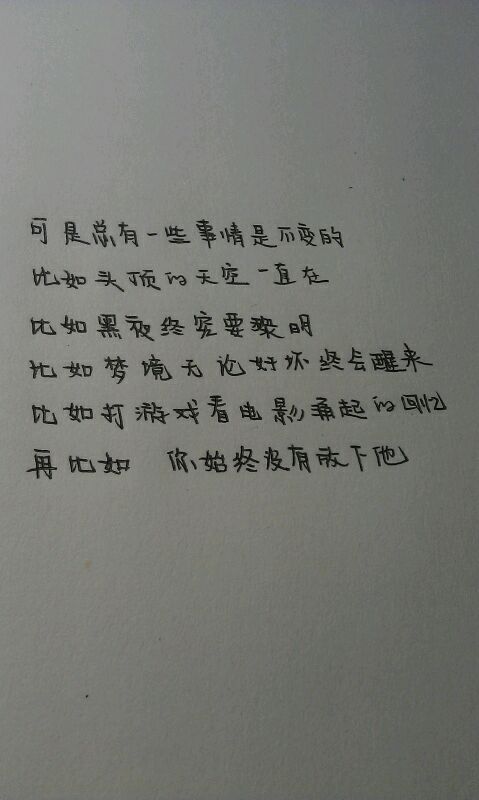 可是总有一些事情是不变的
比如头顶的天空一直在
比如黑夜终究要黎明
比如梦境无论好坏终会醒来
比如打游戏看电影涌起的回忆
再比如 你始终没有放下他